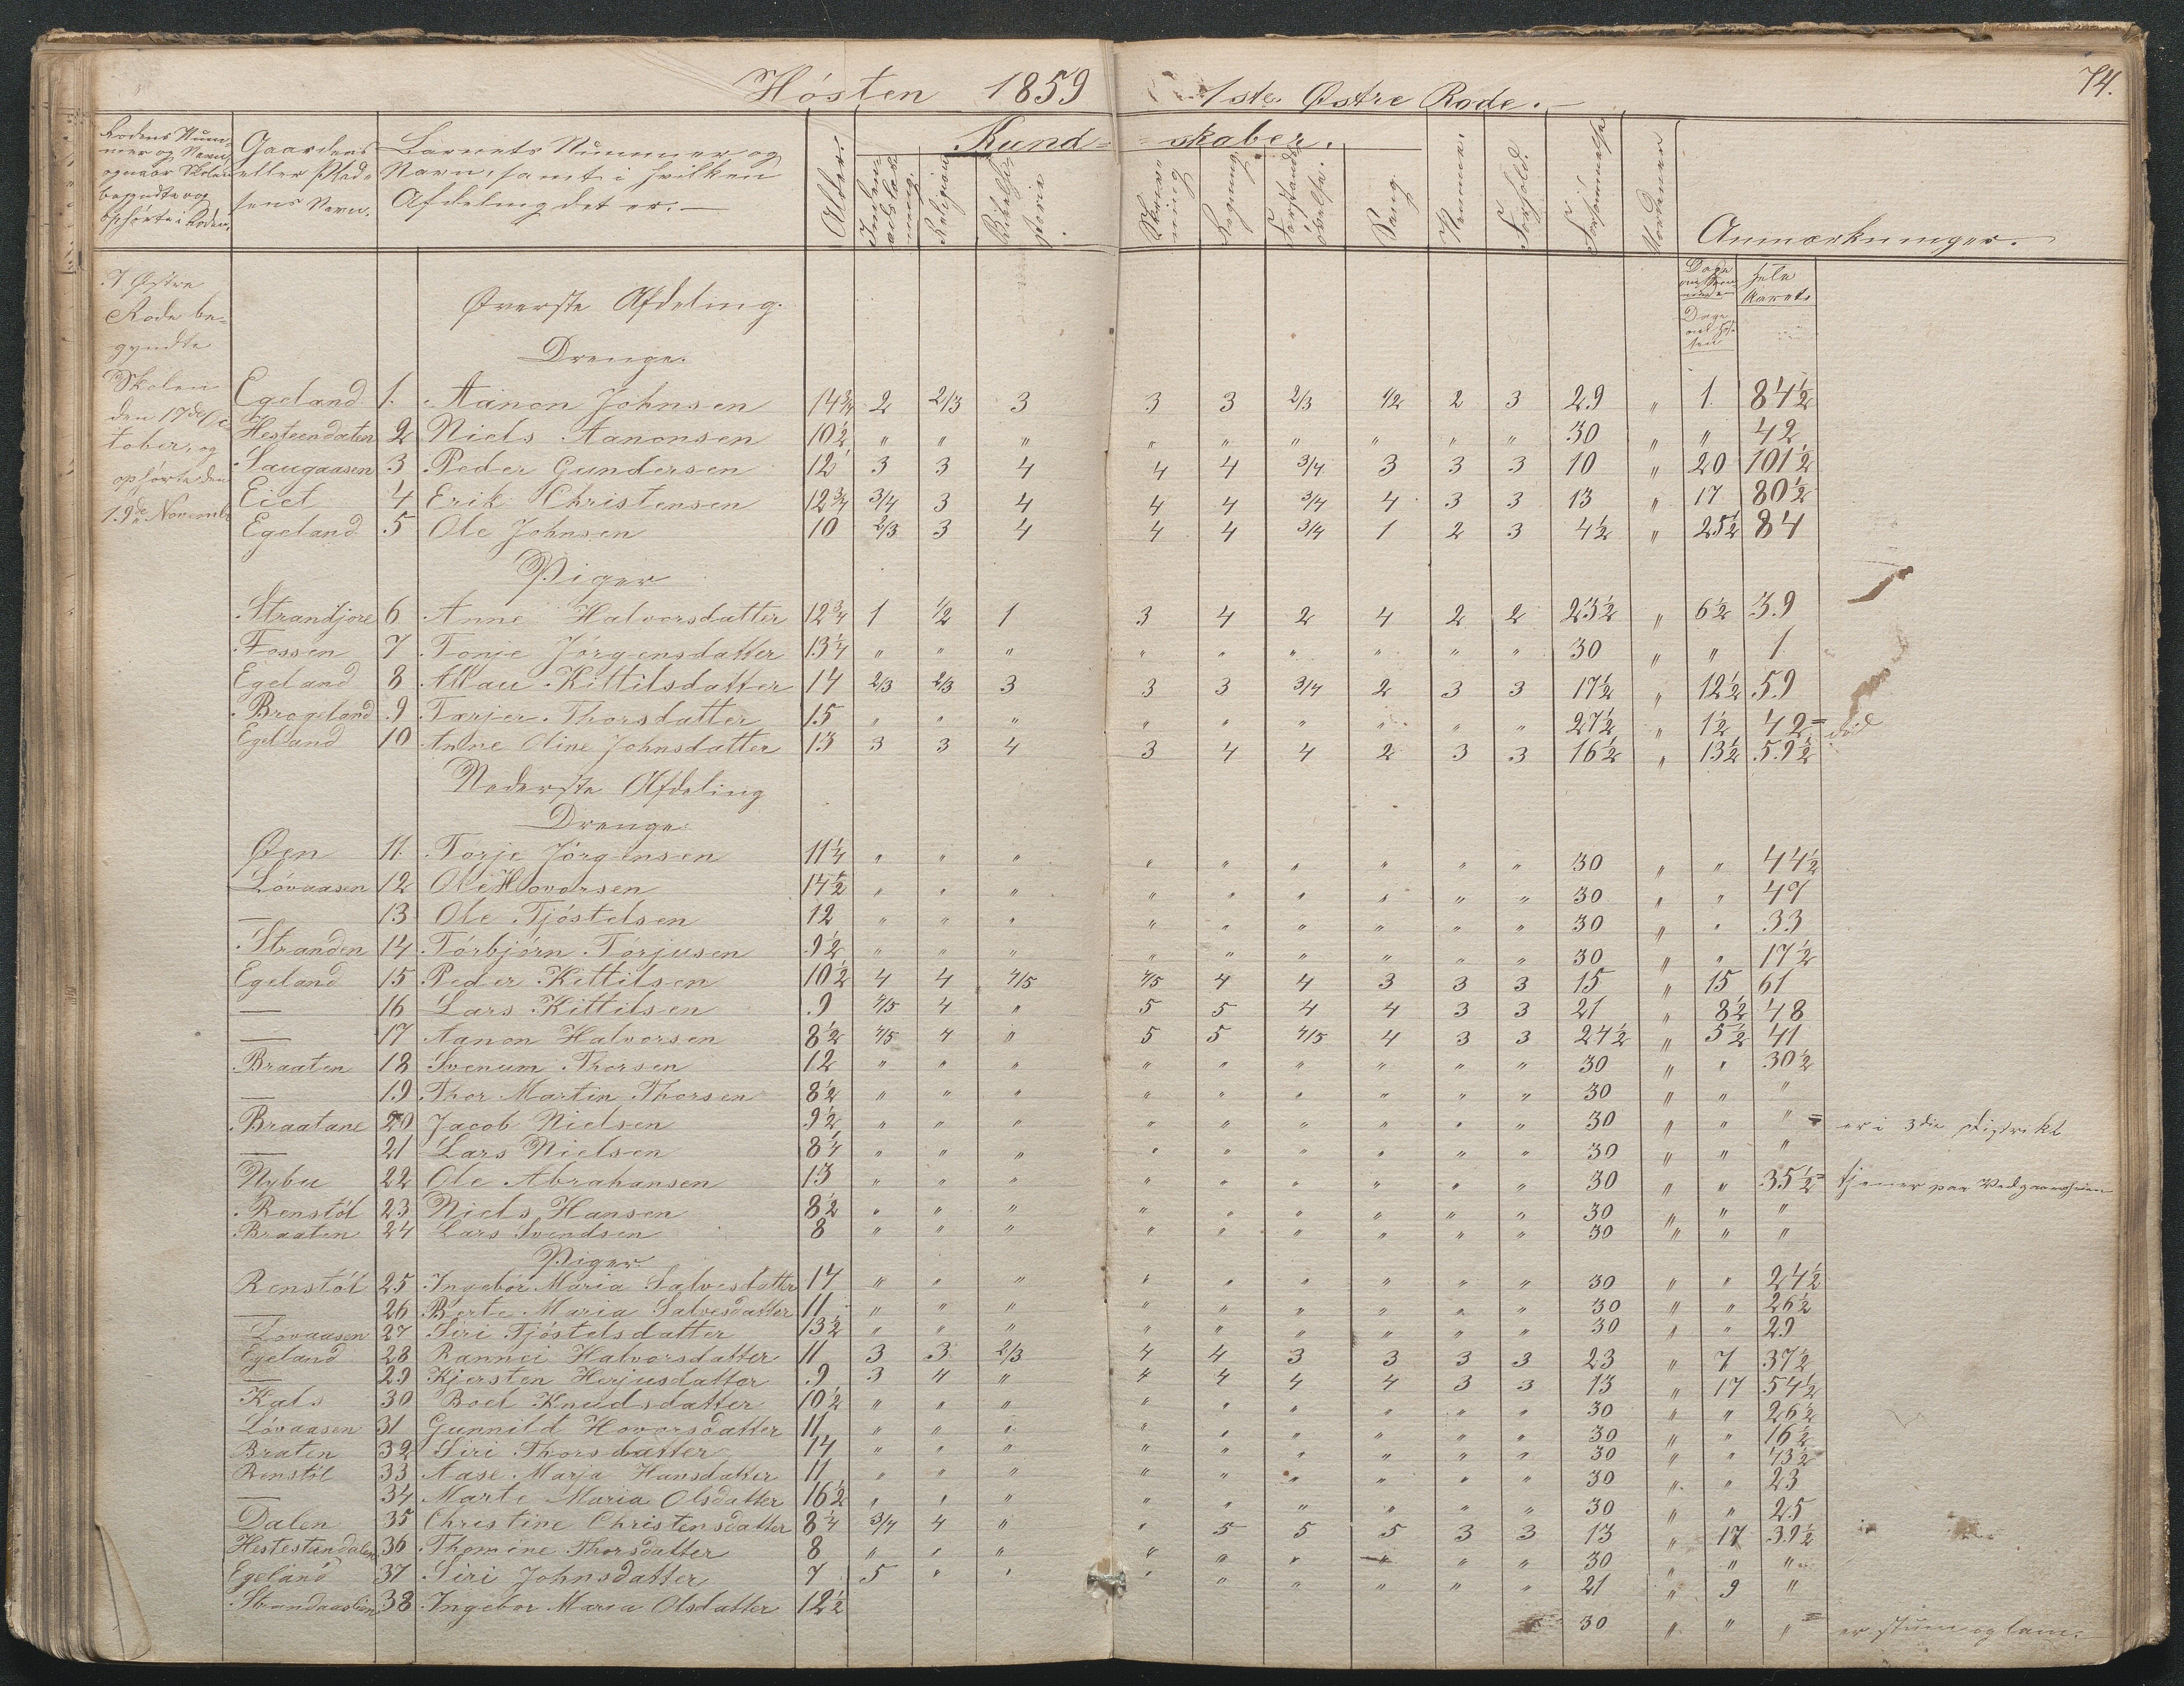 Hósten 1859 1ste. Østre Rode.
74.
Rodens Num-
mer og Navn,
ognaar Skolen
begyndte og
ophørte i Roden.
Gaardens
eller Sted-
sens Navn.
Barnets Nummer og
Navn, samt i hvilken
Afdeling det er.
Alder.
Kund-skaber.
Religion
Bibelhi-
storie.
Skriv-
ning
Regning.
Forstands-
øvelse.
Sang.
Nemme.
Forhold.
Forsømmelse
Anmærkninger.
Hele
Aarets
Dage
I Østre
Rode be-
gyndte
Skolen
den 17de Oc-
tober, og
ophørte den
19de Novemb
Øverste Afdeling.
Drenge.
Egeland 1. Aanon Johnsen 14¾ 2 2/3 3 3 3 2/3 1/2 2 3 29 " 1 84½
Hesteendalen 2 Niels Aanonsen 10½ " " " " " " " " " 30 " " 42
Saugaasen 3 Peder Gundersen 12 3 3 4 4 4 3/4 3 3 3 10 " 20 101½
Eiet 4 Erik Christensen 12¾ 3/4 3 4 4 4 3/4 4 3 3 13 " 17 80½
Egeland 5 Ole Johnsen 10 2/3 3 4 4 4 3/4 1 2 3 4½ " 25½ 84
Piger
Strandjore 6 Anne Halvorsdatter 12¾ 1 1/2 1 3 4 2 4 2 2 23½ " 6½ 39
Fossen 7 Tonje Jörgensdatter 13¼ " " " " " " " " " 30 " " 1
Egeland 8 Allau Kittilsdatter 14 2/3 2/3 3 3 3 3/4 2 3 3 17½ " 12½ 59
Brogeland 9 Tarjer Thorsdatter 15 " " " " " " " " " 27½ " 1½ 42= död
Egeland 10 Anne Oline Johnsdatter 13 3 3 4 3 4 4 2 3 3 16½ " 13½ 59½
Nederste Afdeling
Drenge
Øen 11. Torje Jörgensen 11¼ " " " " " " " " " 30 " " 44½
Lóvaasen 12 Ole Hovorsen 14½ " " " " " " " " " 30 " " 47
— 13 Ole Tjóstelsen 12 " " " " " " " " " 30 " " 33
Stranden 14 Tórbjórn Tórjusen 9½ " " " " " " " " " 30 " " 17½
Egeland 15 Peder Kittilsen 10½ 4 4 4/5 4/5 4 4 3 3 3 15 " 15 61
— 16 Lars Kittilsen 9 4/5 4 " 5 5 4 4 3 3 21 " 8½ 48
— 17 Aanon Halvorsen 8½ 4/5 4 " 5 5 4/5 4 3 3 24½ " 5½ 41
Braaten 18 Svenum Thorsen 12 " " " " " " " " " 30 " " 30½
— 19 Thor Martin Thorsen 8½ " " " " " " " " " 30 " " "
Braatane 20 Jacob Nielsen 9½ " " " " " " " " " 30 " " "= er i 3die Distrikt
— 21 Lars Nielsen 8¼ " " " " " " " " " 30 " " "
Nybu 22 Ole Abrahansen 13 " " " " " " " " " 30 " " 35½= tjener paa
Renstól 23 Niels Hansen 8½ " " " " " " " " " 30 " " "
Braaten 24 Lars Svendsen 8 " " " " " " " " " 30 " " "
Piger
Renstól 25 Ingebór Maria Salvesdatter 14 " " " " " " " " " 30 " " 24½
— 26 Berte Maria Salvesdatter 11 " " " " " " " " " 30 " " 26½
Lovaasen 27 Siri Tjóstelsdatter 13½ " " " " " " " " " 30 " " 29
Egeland 28 Rannei Halvorsdatter 11 3 3 2/3 4 4 3 3 3 3 23 " 7 37½
— 29 Kjersten Herjusdatter 9 3 4 " 4 4 4 4 3 3 13 " 17 54½
Kals 30 Boel Knudsdatter 10½ " " " " " " " " " 30 " " 26½
Lóvaasen 31 Gunnild Hovorsdatter 11 " " " " " " " " " 30 " " 16½
Braten 32 Siri Thorsdatter 14 " " " " " " " " " 30 " " 43½
Renstól 33 Aase Marja Hansdatter 11 " " " " " " " " " 30 " " 23
— 34 Marte Maria Olsdatter 16½ " " " " " " " " " 30 " " 25
Dalen 35 Christine Christensdatter 8¼ 3/4 4 " " 5 5 5 3 3 13 " 17 39½
Hestestendalen 36 Thomine Thorsdatter 8 " " " " " " " " " 30 " " "
Egeland 37 Siri Johnsdatter 7 5 " " " " " " " " 21 " 9 "
Strandaaslien 38 Ingebor Maria Olsdatter 12½ 30 " " "= er stum og lam.